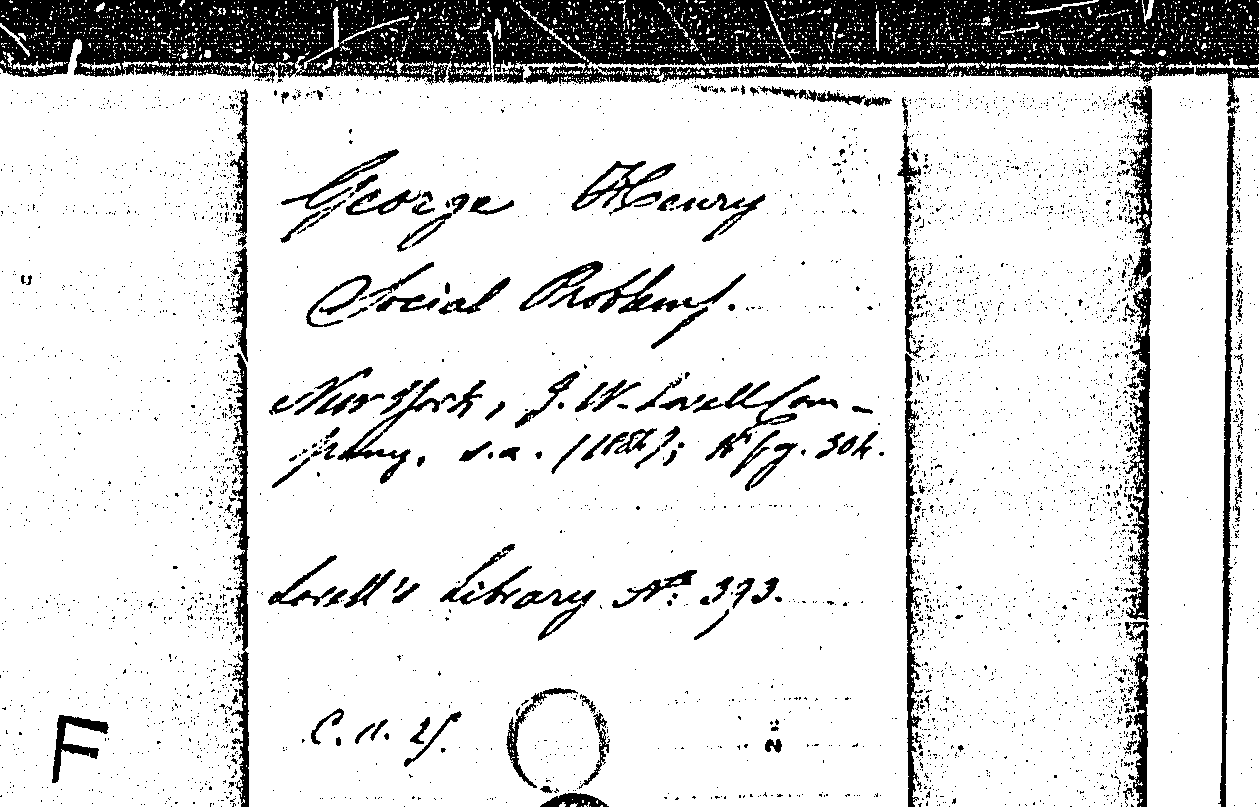 George Henry
Social Problems.
New York, J. W. Lovell Com-
pany. s.a. (188
Lovell's Library Nº 393.
C. 11. 25.
F